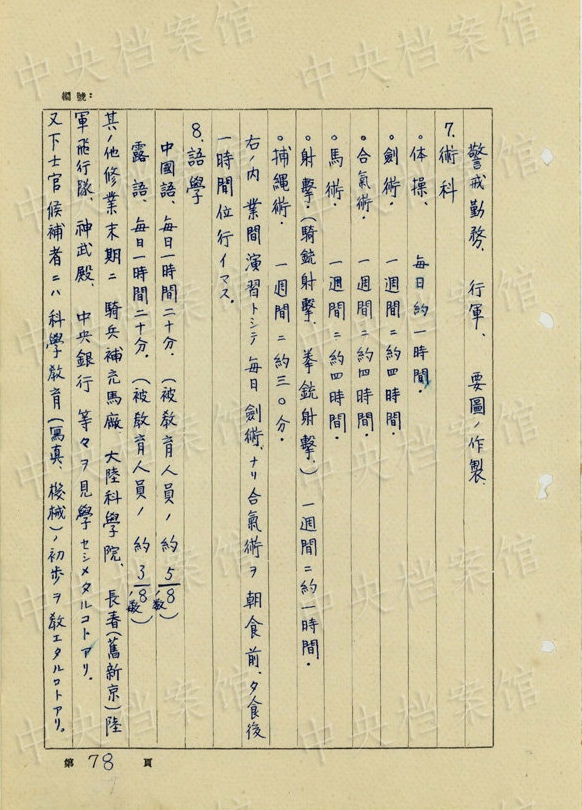 編號：
警戒勤務、 行軍、 要圖ノ作製、
7.術科
○体操、 毎日約一時間.
○劍術. 一週間ニ約四時間.
○合氣術 一週間ニ約四時間.
○馬術. 一週間ニ約四時間.
○射擊.(騎銃射擊、拳銃射擊.) 一週間ニ約一時間.
○捕繩術. 一週間ニ約三〇分.
右ノ内業間演習トシテ毎日劍術、ナリ合氣術ヲ朝食前、夕食後
一時間位行イマス.
8.語學
中國語、毎日一時間二十分. (被敎育人員ノ約5/8ノ數)
露語、毎日一時間二十分. (被敎育人員ノ約3/8ノ數)
其ノ他修業末期ニ騎兵補充馬廠 大陸科學院、長春(舊新京)陸
軍飛行隊、神武殿、中央銀行 等々ヲ見學セシメタルコトアリ.
又下士官候補者ニハ科學敎育(寫真 機械)ノ初歩ヲ敎エタルコトアリ。
第 78 頁
中央档案馆